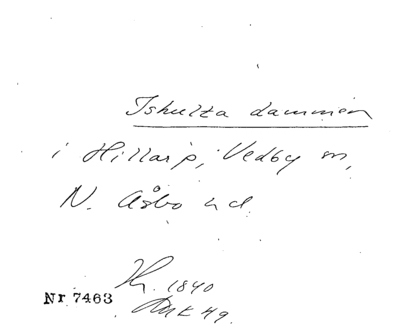 Ishulta dammen
i Hillarp, Vedby sn,
N. Åsbo hd
Kr. 1840
Nr 7463
RAK 49.